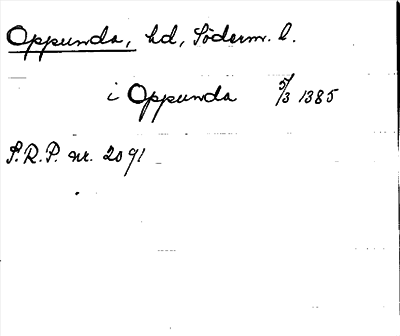 Oppunda, hd, Söderm. l.
i Oppunda 5/3 1385
S.R.P. nr. 2091